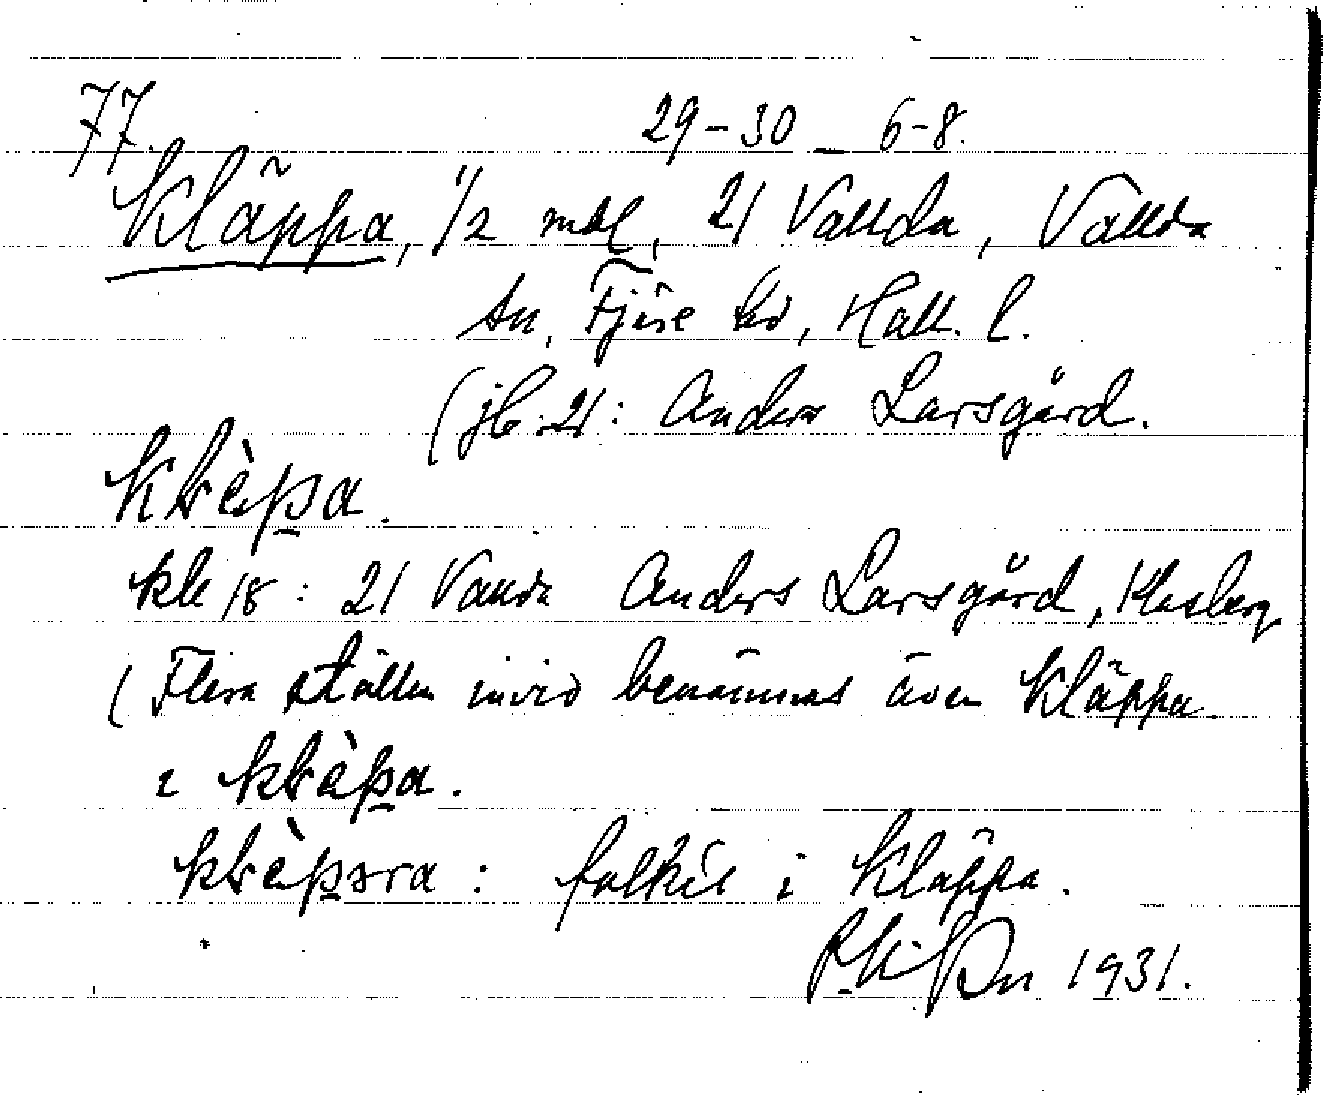 77. 29-30 _ 6-8.
Kläppa, 1/2 mtl, 21 Vallda, Vallda
sn, Fjäre hd, Hall. l.
(jb: 21: Anders Larsgård.
klèpa.
klk 18: 21 Vallda Anders Larsgård,
(Flera ställen invid benämnas även Kläppa
klèpa.
klèpara: folket i Kläppa.
1931.